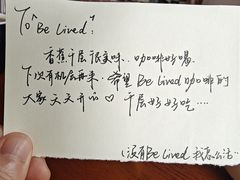 To "Be Lived":
香蕉千层很美味..咖啡好喝.
下次有机会再来.希望Be Lived咖啡的
大家天天开心♡千层好好吃....
(没有Be Lived 我怎么活